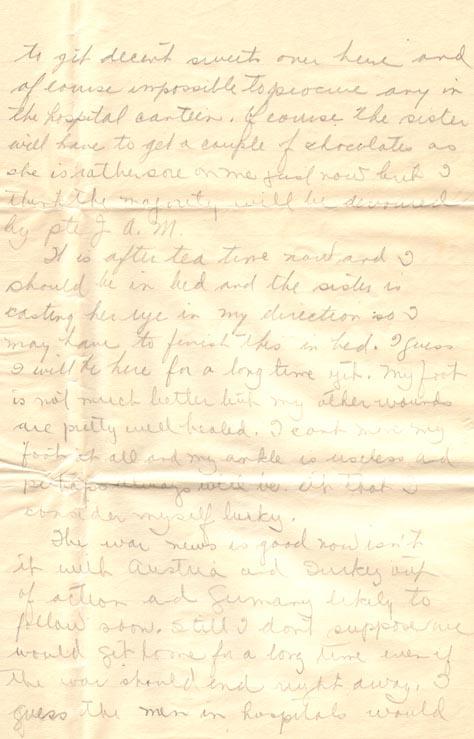 to git decent sweets over here and
of course impossible to procure any in
the hospital canteen. Of course the sister
will have to get a couple of chocolates as
she is rather sore on me just now but I
think the majority will be devoured
by pte J. A. M.
It is after tea time now and I
should be in bed and the sister is
casting her eye in my direction so I
may have to finish this in bed. I guess
I will be here for a long time yet. My foot
is not much better but my other wounds
are pretty well healed. I cant move my
foot at all and my ankle is useless and
perhaps always will be. At that I
consider myself lucky.
The war news is good now isn't
it with Austria and Turkey out
of action and Germany likely to
follow soon. Still I dont suppose we
would get home for a long time even if
the war should end right away. I
guess the men in hospitals would